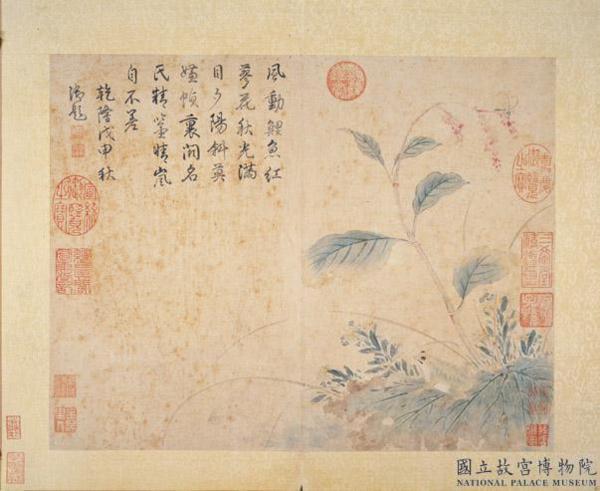 風動鯉魚紅
蓼花秋光滿
目夕陽斜莫
嫌幀裏闕名
氏精鑒晴嵐
自不差
乾隆戊申秋
御題
國立故宮博物院
NATIONAL PALACE MUSEUM